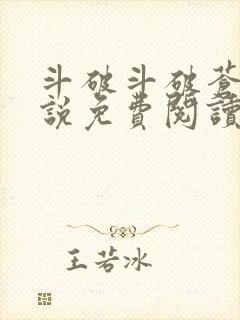 斗破斗破蒼
說免費閱讀
王若冰